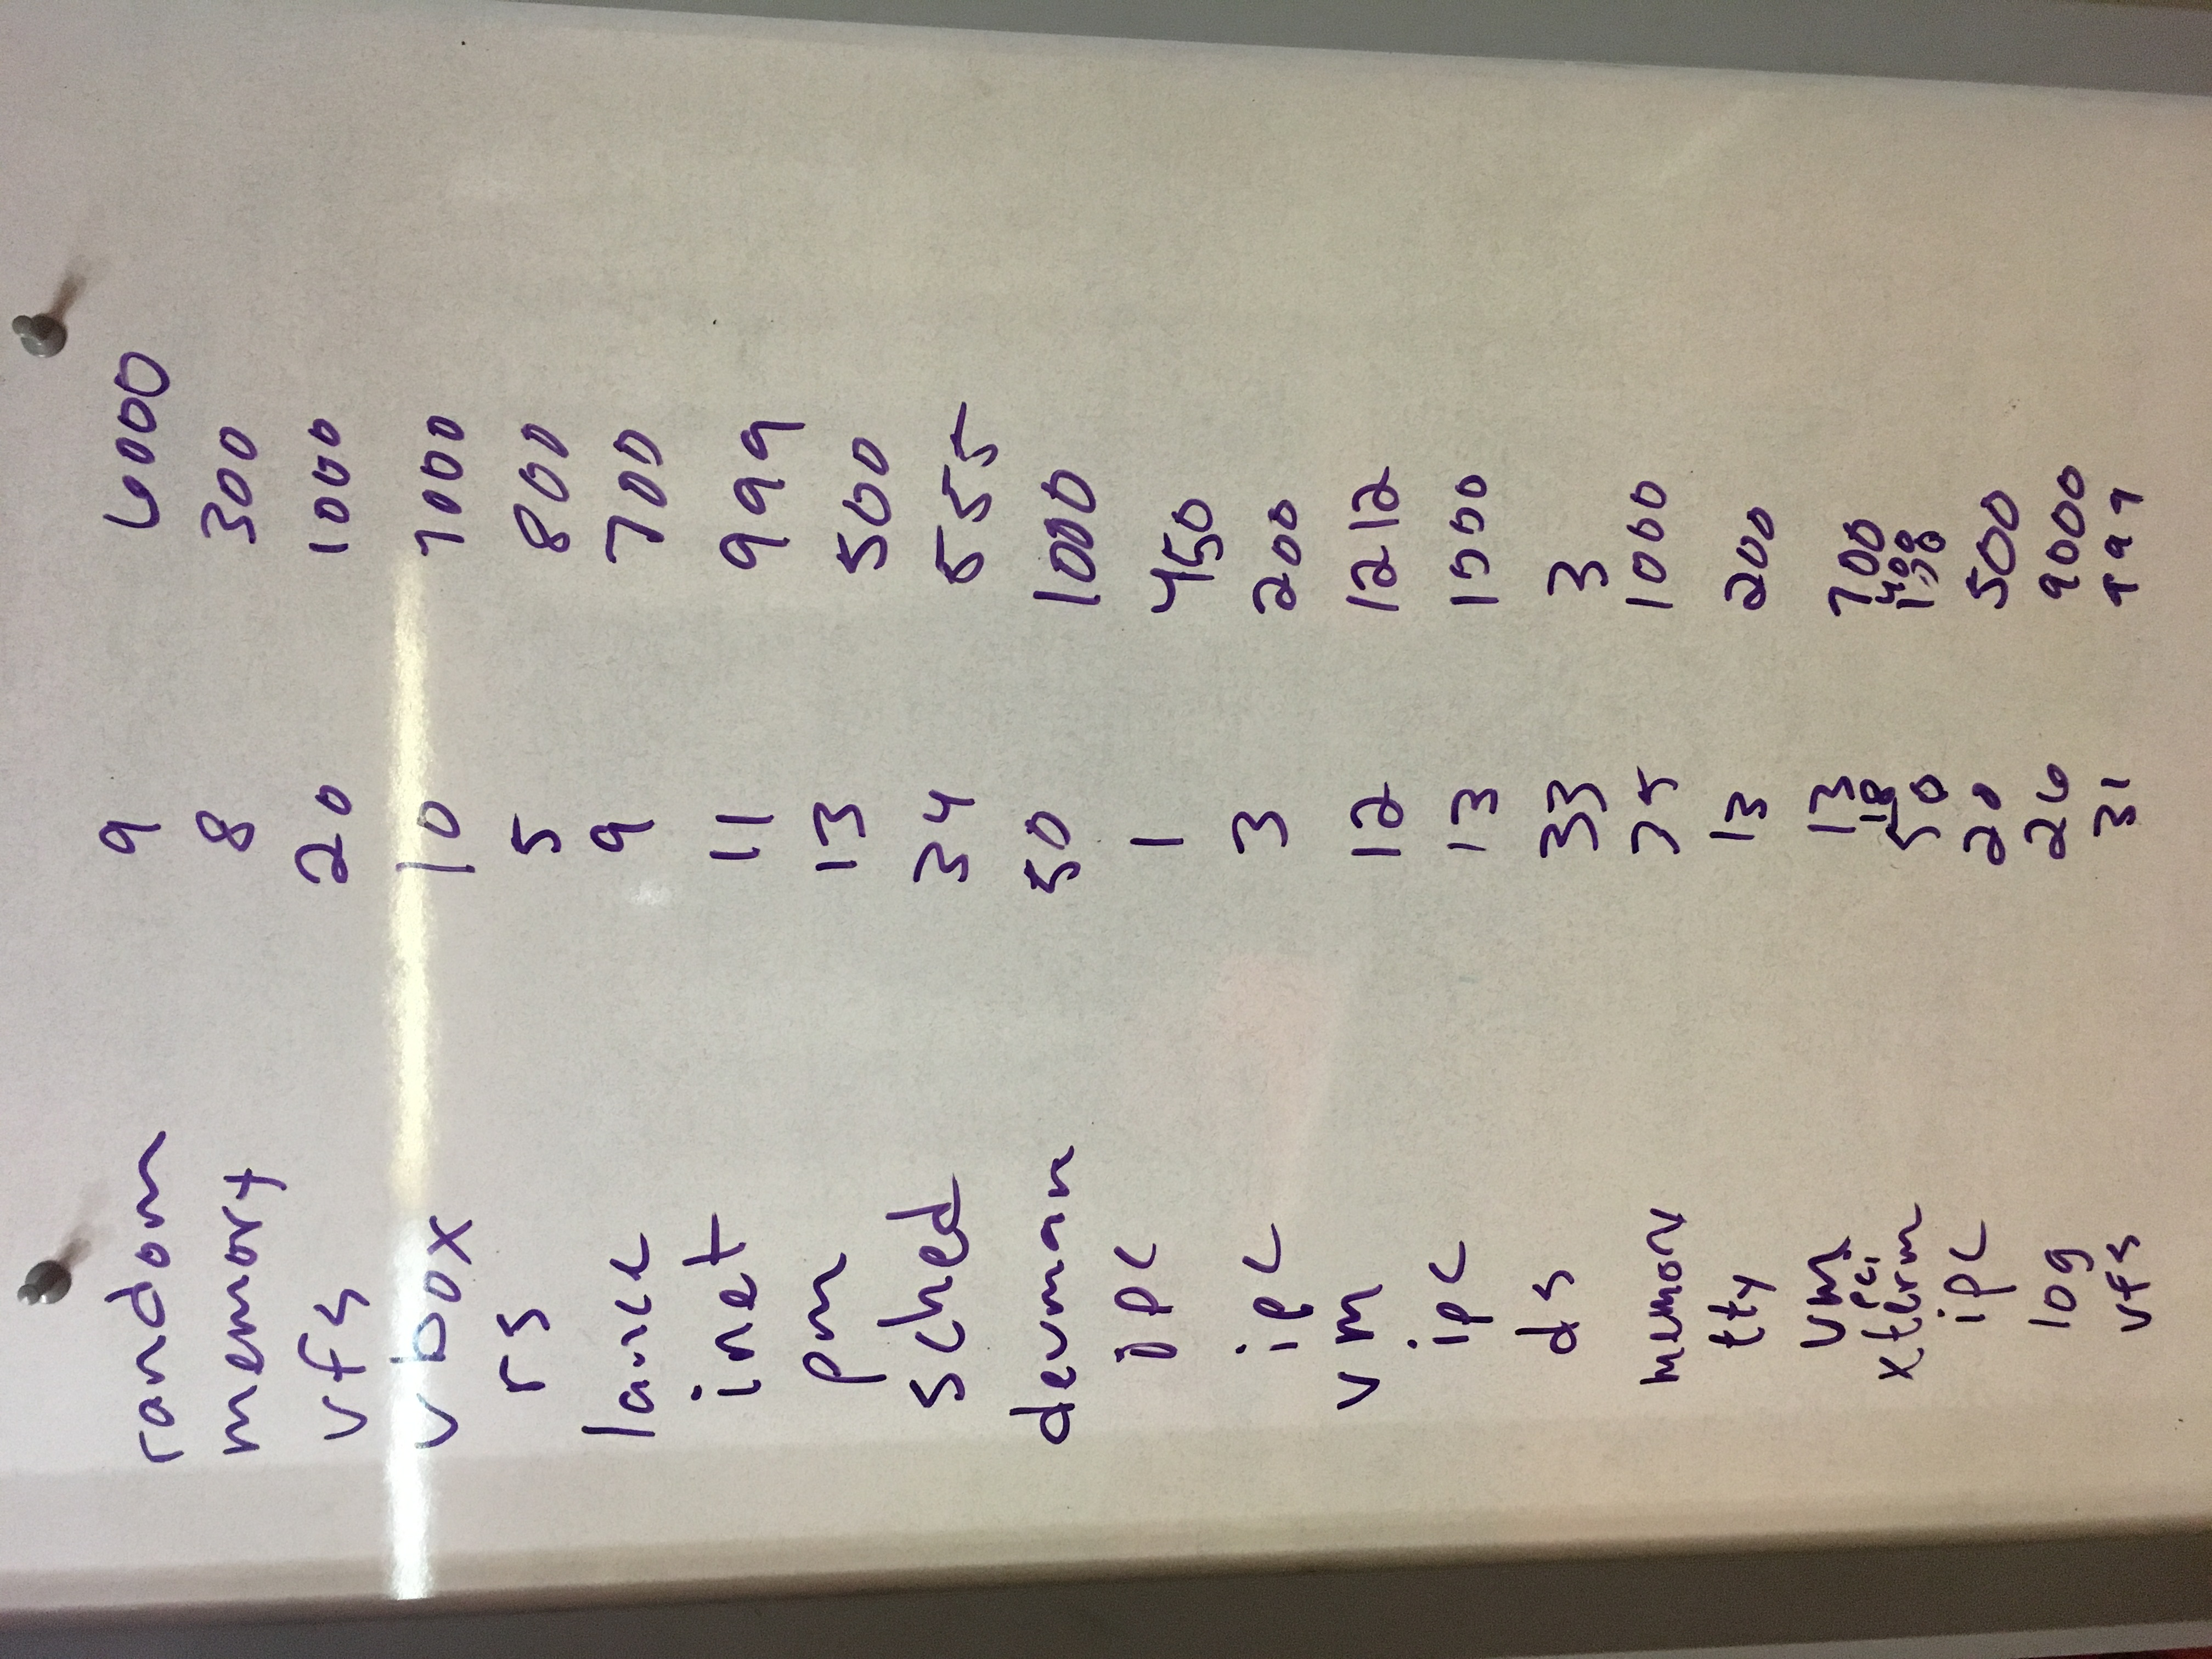 random 9 6000
memory 8 300
vfs 20 1000
vbox 10 7000
rs 5 800
lance 9 700
inet 11 999
pm 13 500
sched 34 555
devman 50 1000
ipc 1 450
ipc 3 200
vm 12 1212
ipc 13 1000
ds 33 3
memory 75 1000
tty 13 200
vm 13 700
pci 18 400
xterm 50
ipc 20 500
log 26 9000
vfs 31 999